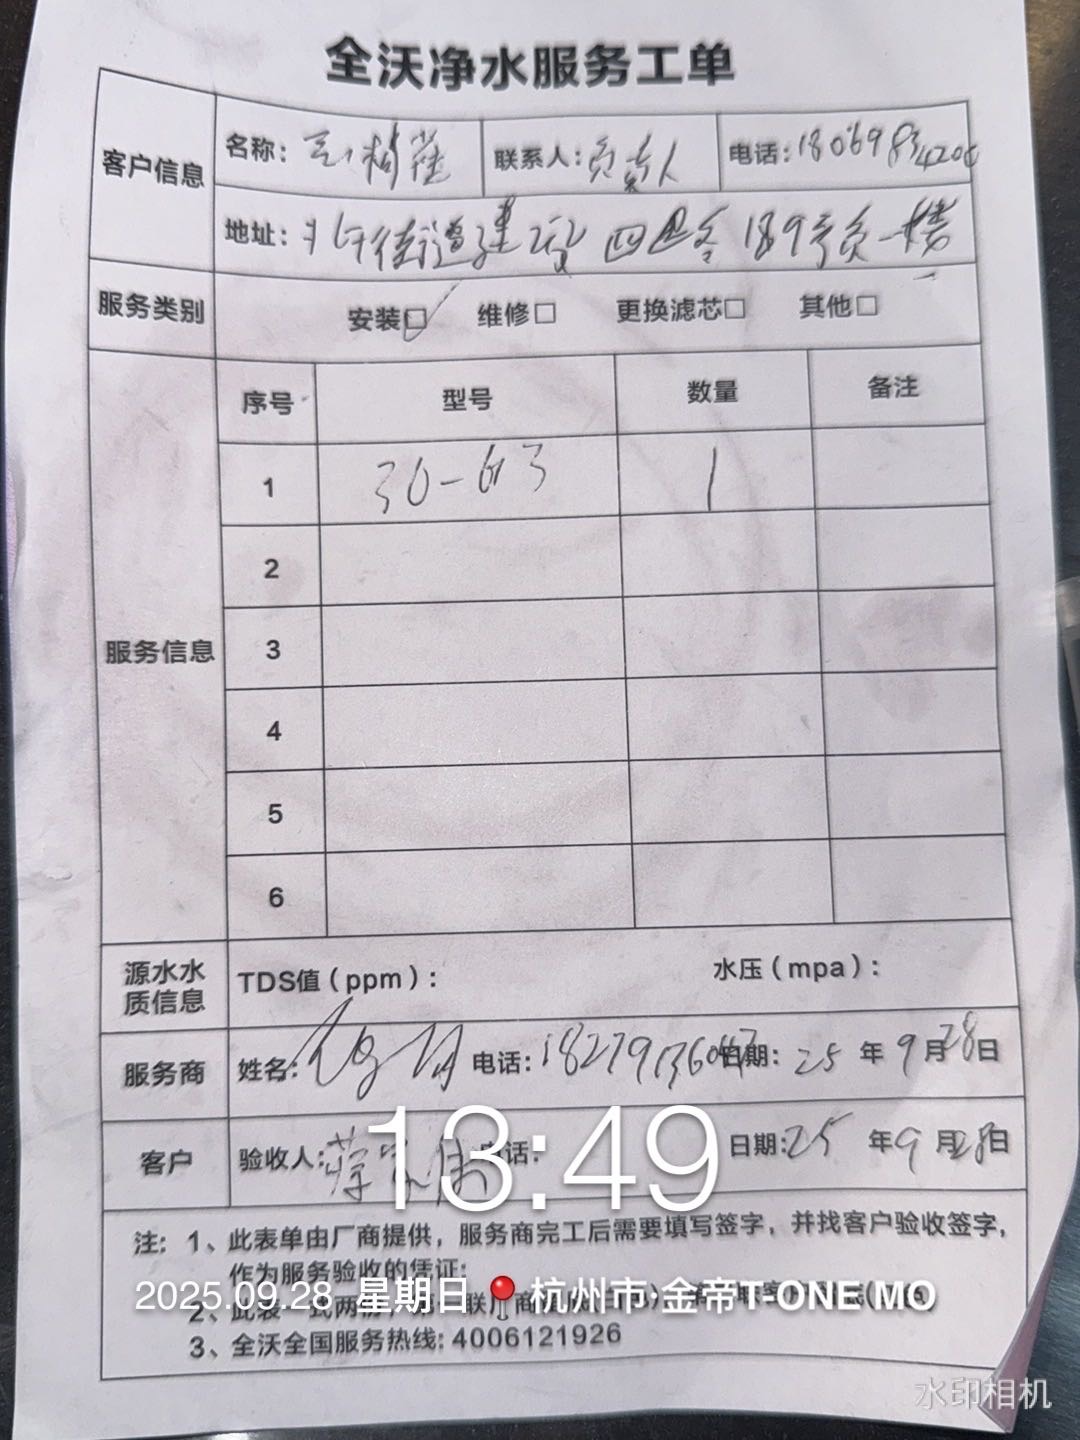 全沃净水服务工单
客户信息
名称：
联系人：负责人
电话：18069834206
地址：街道建设四路189号负一楼
服务类别
安装☑ 维修□ 更换滤芯□ 其他□
服务信息
序号 型号 数量 备注
1 30-G3 1
2
3
4
5
6
源水水质信息
TDS值（ppm）： 水压（mpa）：
服务商
姓名： 电话： 日期：25年9月28日
客户
验收人： 电话： 日期：25年9月28日
13:49
注：1、此表单由厂商提供，服务商完工后需要填写签字，并找客户验收签字，
作为服务验收的凭证；
2025.09.28 星期日 杭州市·金帝T-ONE.MO
2、此表一式两份，
3、全沃全国服务热线：4006121926
水印相机